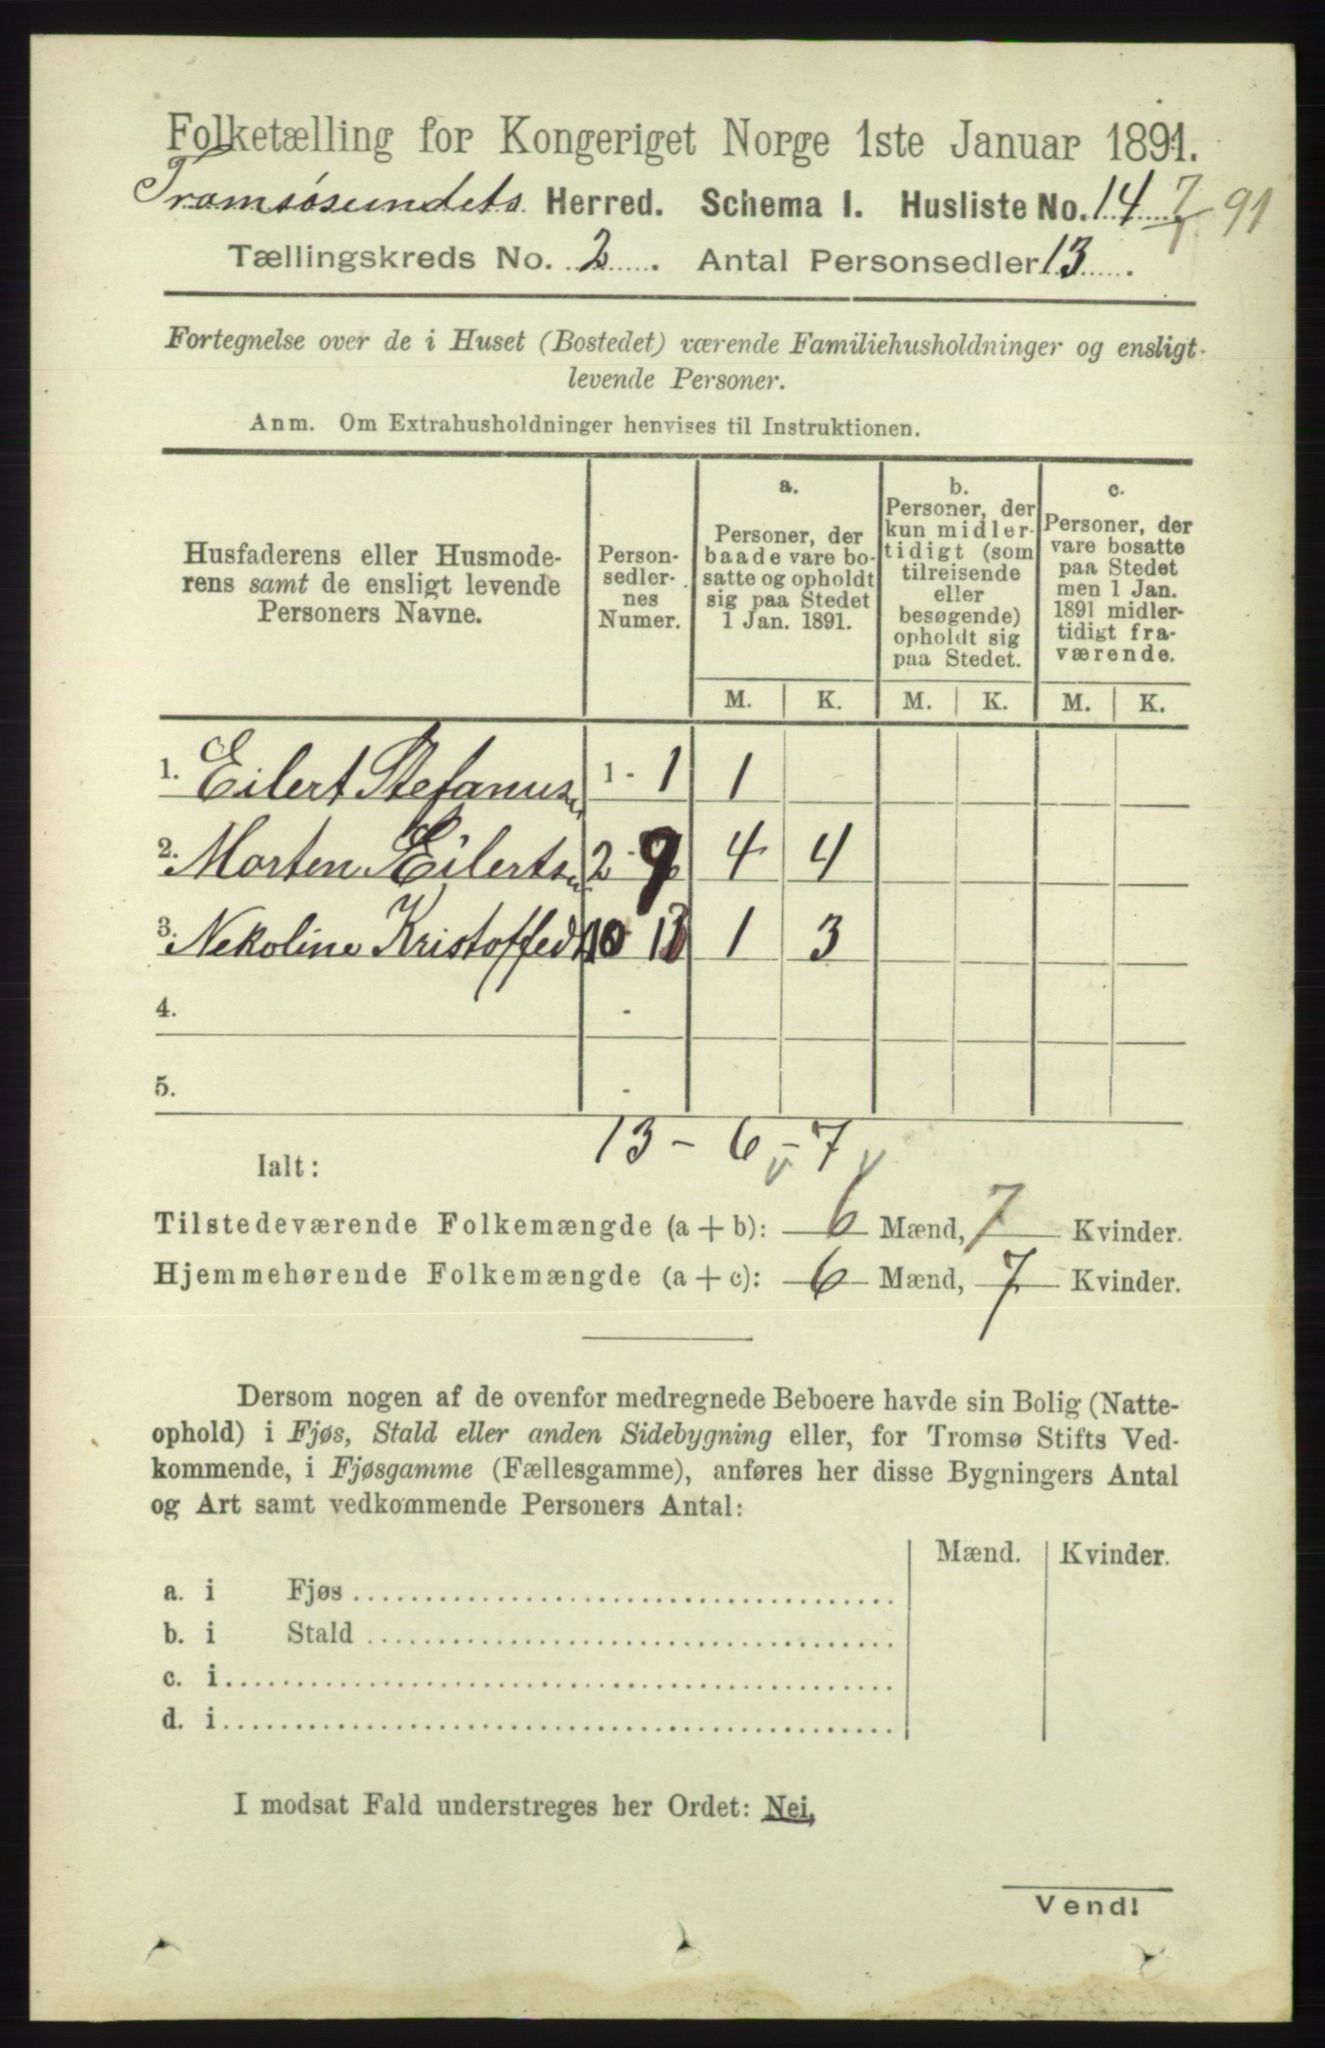 Folketælling for Kongeriget Norge 1ste Januar 1891.
Tromsøsundets Herred. Schema I. Husliste No. 14 7 91
Tællingskreds No. 2. Antal Personsedler 13.
Fortegnelse over de i Huset (Bostedet) værende Familiehusholdninger og ensligt
levende Personer.
Anm. Om Extrahusholdninger henvises til Instruktionen.
Husfaderens eller Husmode-
rens samt de ensligt levende
Personers Navne.
Person-
sedler-
nes
Numer.
a.
Personer, der
baade vare bo-
satte og opholdt
sig paa Stedet
1 Jan. 1891.
b.
Personer, der
kun midler-
tidigt (som
tilreisende
eller
besøgende)
opholdt sig
paa Stedet.
c.
Personer, der
vare bosatte
paa Stedet
men 1 Jan.
1891 midler-
tidigt fra-
værende.
M. K. M. K. M. K.
1. Eilert Stefanus 1 - 1 1
2. Morten Eilerts 2 - 9 4 4
3. Nekoline Kristoffed 10 13 1 3
4. -
5. -
13 - 6 - 7
Ialt:
Tilstedeværende Folkemængde (a + b): 6 Mænd, 7 Kvinder.
Hjemmehørende Folkemængde (a + c): 6 Mænd, 7 Kvinder.
Dersom nogen af de ovenfor medregnede Beboere havde sin Bolig (Natte-
ophold) i Fjøs, Stald eller anden Sidebygning eller, for Tromsø Stifts Ved-
kommende, i Fjøsgamme (Fællesgamme), anføres her disse Bygningers Antal
og Art samt vedkommende Personers Antal:
Mænd. Kvinder.
a. i Fjøs
b. i Stald
c. i
d. i
I modsat Fald understreges her Ordet: Nei.
Vend!